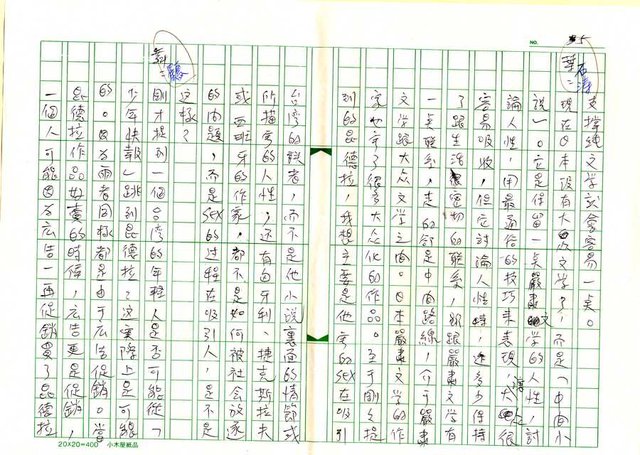 NO.
葉石濤:
支撐純文學或會容易一点。
現在日本沒有大眾文學了，而是「中間小
說」。它是保留一点嚴肅文學的人性，討
論人性，用最通俗的技巧來表現，大众很
容易吸收，但它討論人性時，還多少保持
了跟生活密切的聯系，跟嚴肅文學有
一点系，走的是中間路線，介于嚴肅
文學跟大众文學之間。日本嚴肅文學的作
家也寫了很多大众化的作品。至于剛才提
到的昆德拉，我想主要是他寫的SEX在吸引
台湾的讀者，而不是他小說裏面的情節或
所描寫的人性，還有匈牙利、捷克斯拉夫
或西班牙的作家，都不如何被社會放逐
的問題，而是SEX的過程在吸引人，是不是
這樣？
剛才提到一個台湾的年輕人是否可能從
少年快報跳到昆德拉，這上可能
的。因為昆德拉作品 廣告促銷，當
一個人可能因為廣告一再促銷買了昆德拉
20X20=400 小木屋紙品